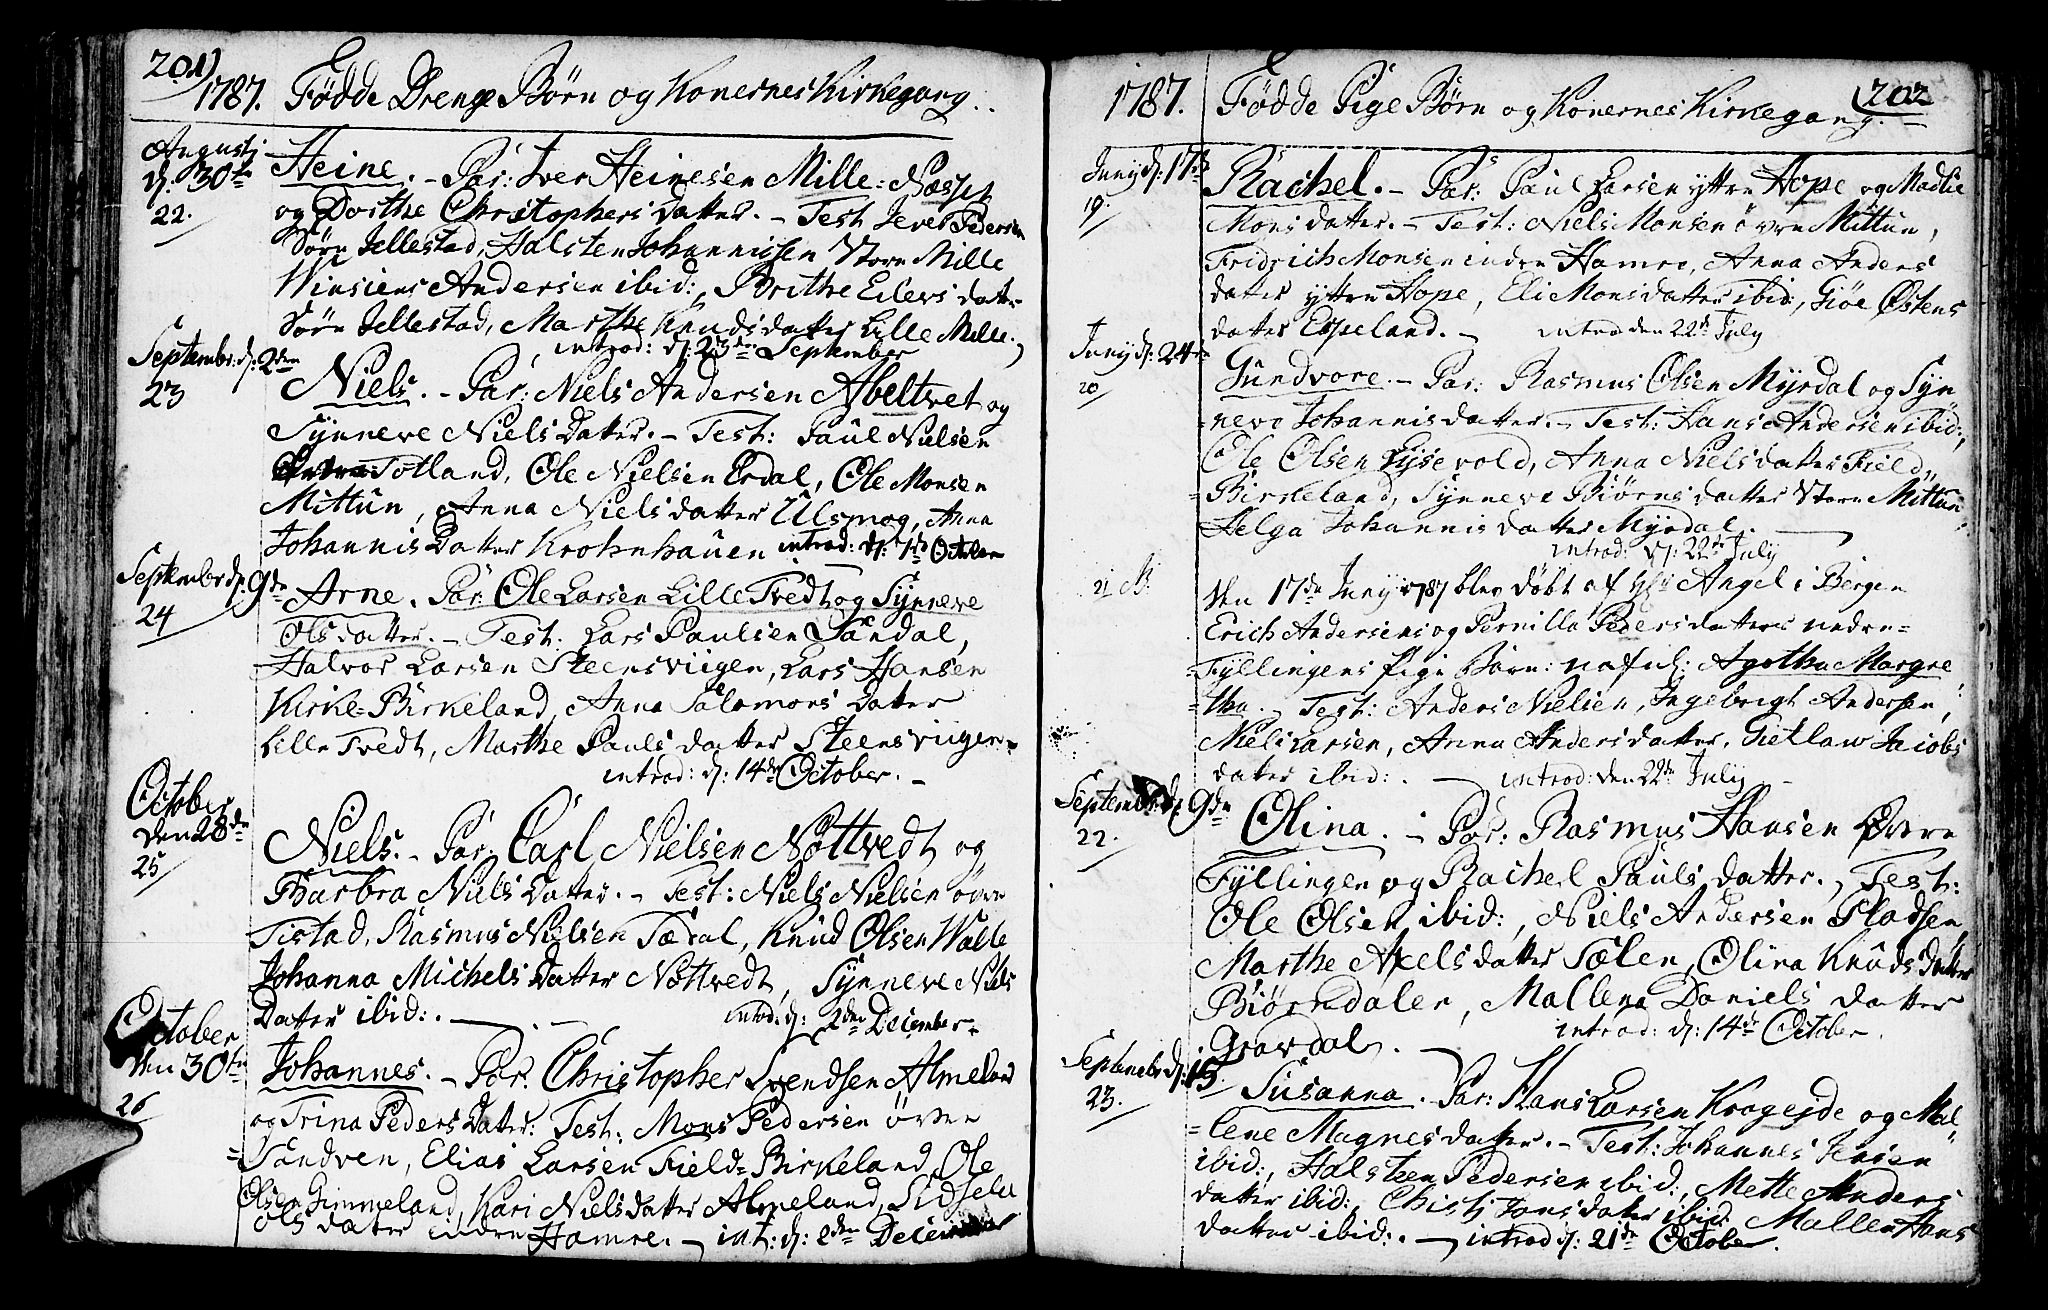 201)
1787. Fødde Drenge Børn og Konernes Kirkegang.
Augustj
d: 30te
22.
Heine. - Par: Iver Heinesen Mille: Næsset
og Dorthe Christophers Datter. - Test Peder
Søre Jellestad, Halsten Johannissen Store Mille
Andersen ibid:, Brithe Eilevs datter
Søre Jellestad, Marthe Knudsdatter Lille Mille.
introd: d: 23de September
Septembr: d: 2den
23
Niels. - Par: Niels Andersen Abeltvet og
Synneve Niels Datter. - Test: Paul Nielsen
Totland, Ole Nielsen Erdal, Ole Monsen
Mittun, Anna Nielsdatter Ulsmog, Anna
Johannis Datter Krohnhauen introd: d: October
Septembr d: 9de
24
Arne. Par: Ole Larsen Lille Tvedt og Synneve
Olsdatter. - Test: Lars Paulsen Sandal,
Halvor Larsen Steensviigen, Lars Hansen
Kirke-Birkeland, Anna Salomons Datter
Lille Tvedt, Marthe Pauls datter Steensviigen.
introd: d: 14de October. -
October
den 28de
25
Niels. - Par: Carl Nielsen Nøttvedt og
Barbra Niels Datter. - Test: Niels Nielsen øvre
Tistad, Rasmus Nielsen, Knud Olsen Walle
Johanna Michels Datter Nøttvedt, Synneve Niels
Datter ibid:. - introd: d: 2den December.
October
den 30te
26
Johannes. - Par. Christopher Svendsen Almeland
og Trina Peders Datter: Test: Mons Pedersen øvre
Sandven, Elias Larsen Field-Birkeland, Ole
Olsen Gimmeland, Kari Nielsdatter Almeland, Sidsele
Ols datter indre Hamre. - int: d: 2den December
1787. Fødde Pige Børn og Konernes Kirkegang. 202
Juny d: 17de
19.
Rachel. - Par: Paul Larsen yttre Hope og Madlie
Mons datter. - Test: Niels Monsen øvre Mittun,
Fridrich Monsen indre Hamre, Anna Anders
datter yttre Hope, Eli Monsdatter ibid:, Giøe Østens
datter Espeland. - introd den 22de July
Juny d: 24de
20
Gundvore. - Par: Rasmus Olsen Myrdal og Syn
neve Johannisdatter. - Test: Hans Andersen ibid:,
Ole Olsen Lysevold, Anna Nielsdatter Field
Birkeland, Synneve Biørns datter Store Mittun
Helga Johannis datter Myrdal.
introd: d: 22de July
21
Den 17de Juny 1787 blev døbt af Angel i Bergen
Erich Andersens og Pernille Pedersdatters nedre
Fyllingens Pige Børn: nafnl: Agatha Margre
tha. - Test: Anders Nielsen, Ingebrigt Andersen,
Niels Larsen, Anna Andersdatter, Jacobs
datter ibid:. - introd: den 22de July -
Septembr d: 9de
22.
Olina. - Par: Rasmus Hansen Øvre
Fyllingen og Rachel Pauls datter. - Test:
Ole Olsen ibid:, Niels Andersen Pladsen,
Marthe Axels datter Sælen, Olina Knuds datter
Biørndalen, Mallena Daniels datter
Gravdal. - introd: d: 14de October.
Septembr d: 15.
23.
Susanna. - Par: Hans Larsen Krogeide og Mal
lene Magnesdatter. - Test: Johannes Jensen
ibid:, Halsteen Pedersen ibid:, Mette Anders
datter ibid:, Christj datter ibid: Mallen Hans
datter ibid:. - introd d: 21de October.